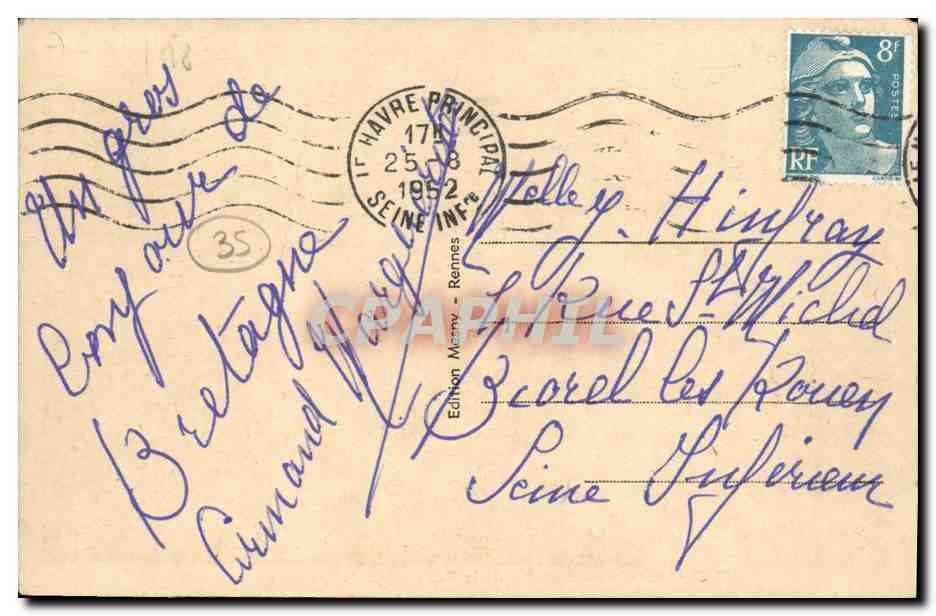 Un gros
bonjour de
Bretagne
Armand
1r HAVRE PRINCIPAL
17H
25-8
1952
SEINE INFre
8F
POSTES
RF
35
18
Edition Mesny - Rennes
CPAPHIL
Melle J. Hinfray
Rue St Michel
Biorel les Rouen
Seine Inférieur